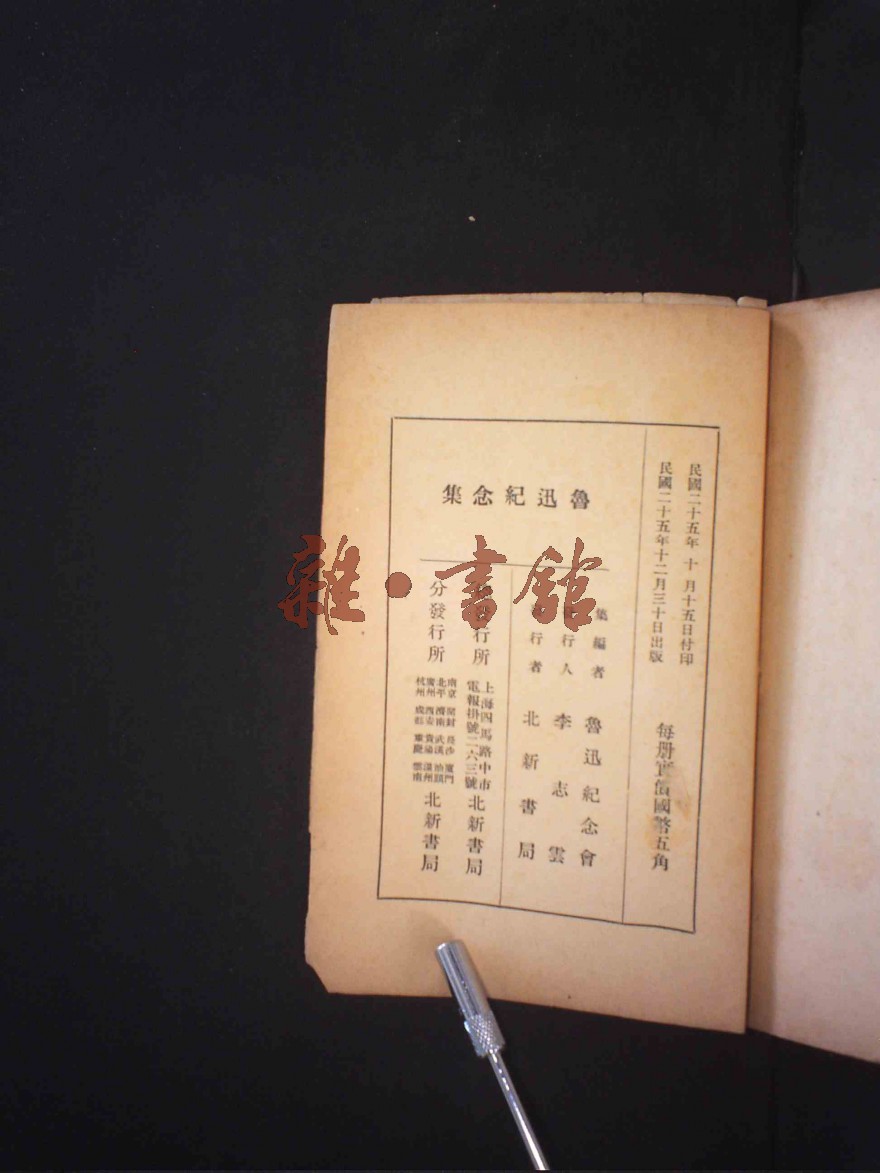 民國二十五年 十 月十五日付印
民國二十五年十二月三十日出版
每册實價國幣五角
魯迅紀念集
集編者 魯迅紀念會
行人 李志雲
行者 北新書局
發行所 上海四馬路中市 電報掛號二六三號 北新書局
分發行所
南京 開封 長沙 廈門
北平 濟南 武漢 汕頭
廣州 西安 貴陽 溫州
杭州 成都 重慶 雲南
北新書局
雜·書館